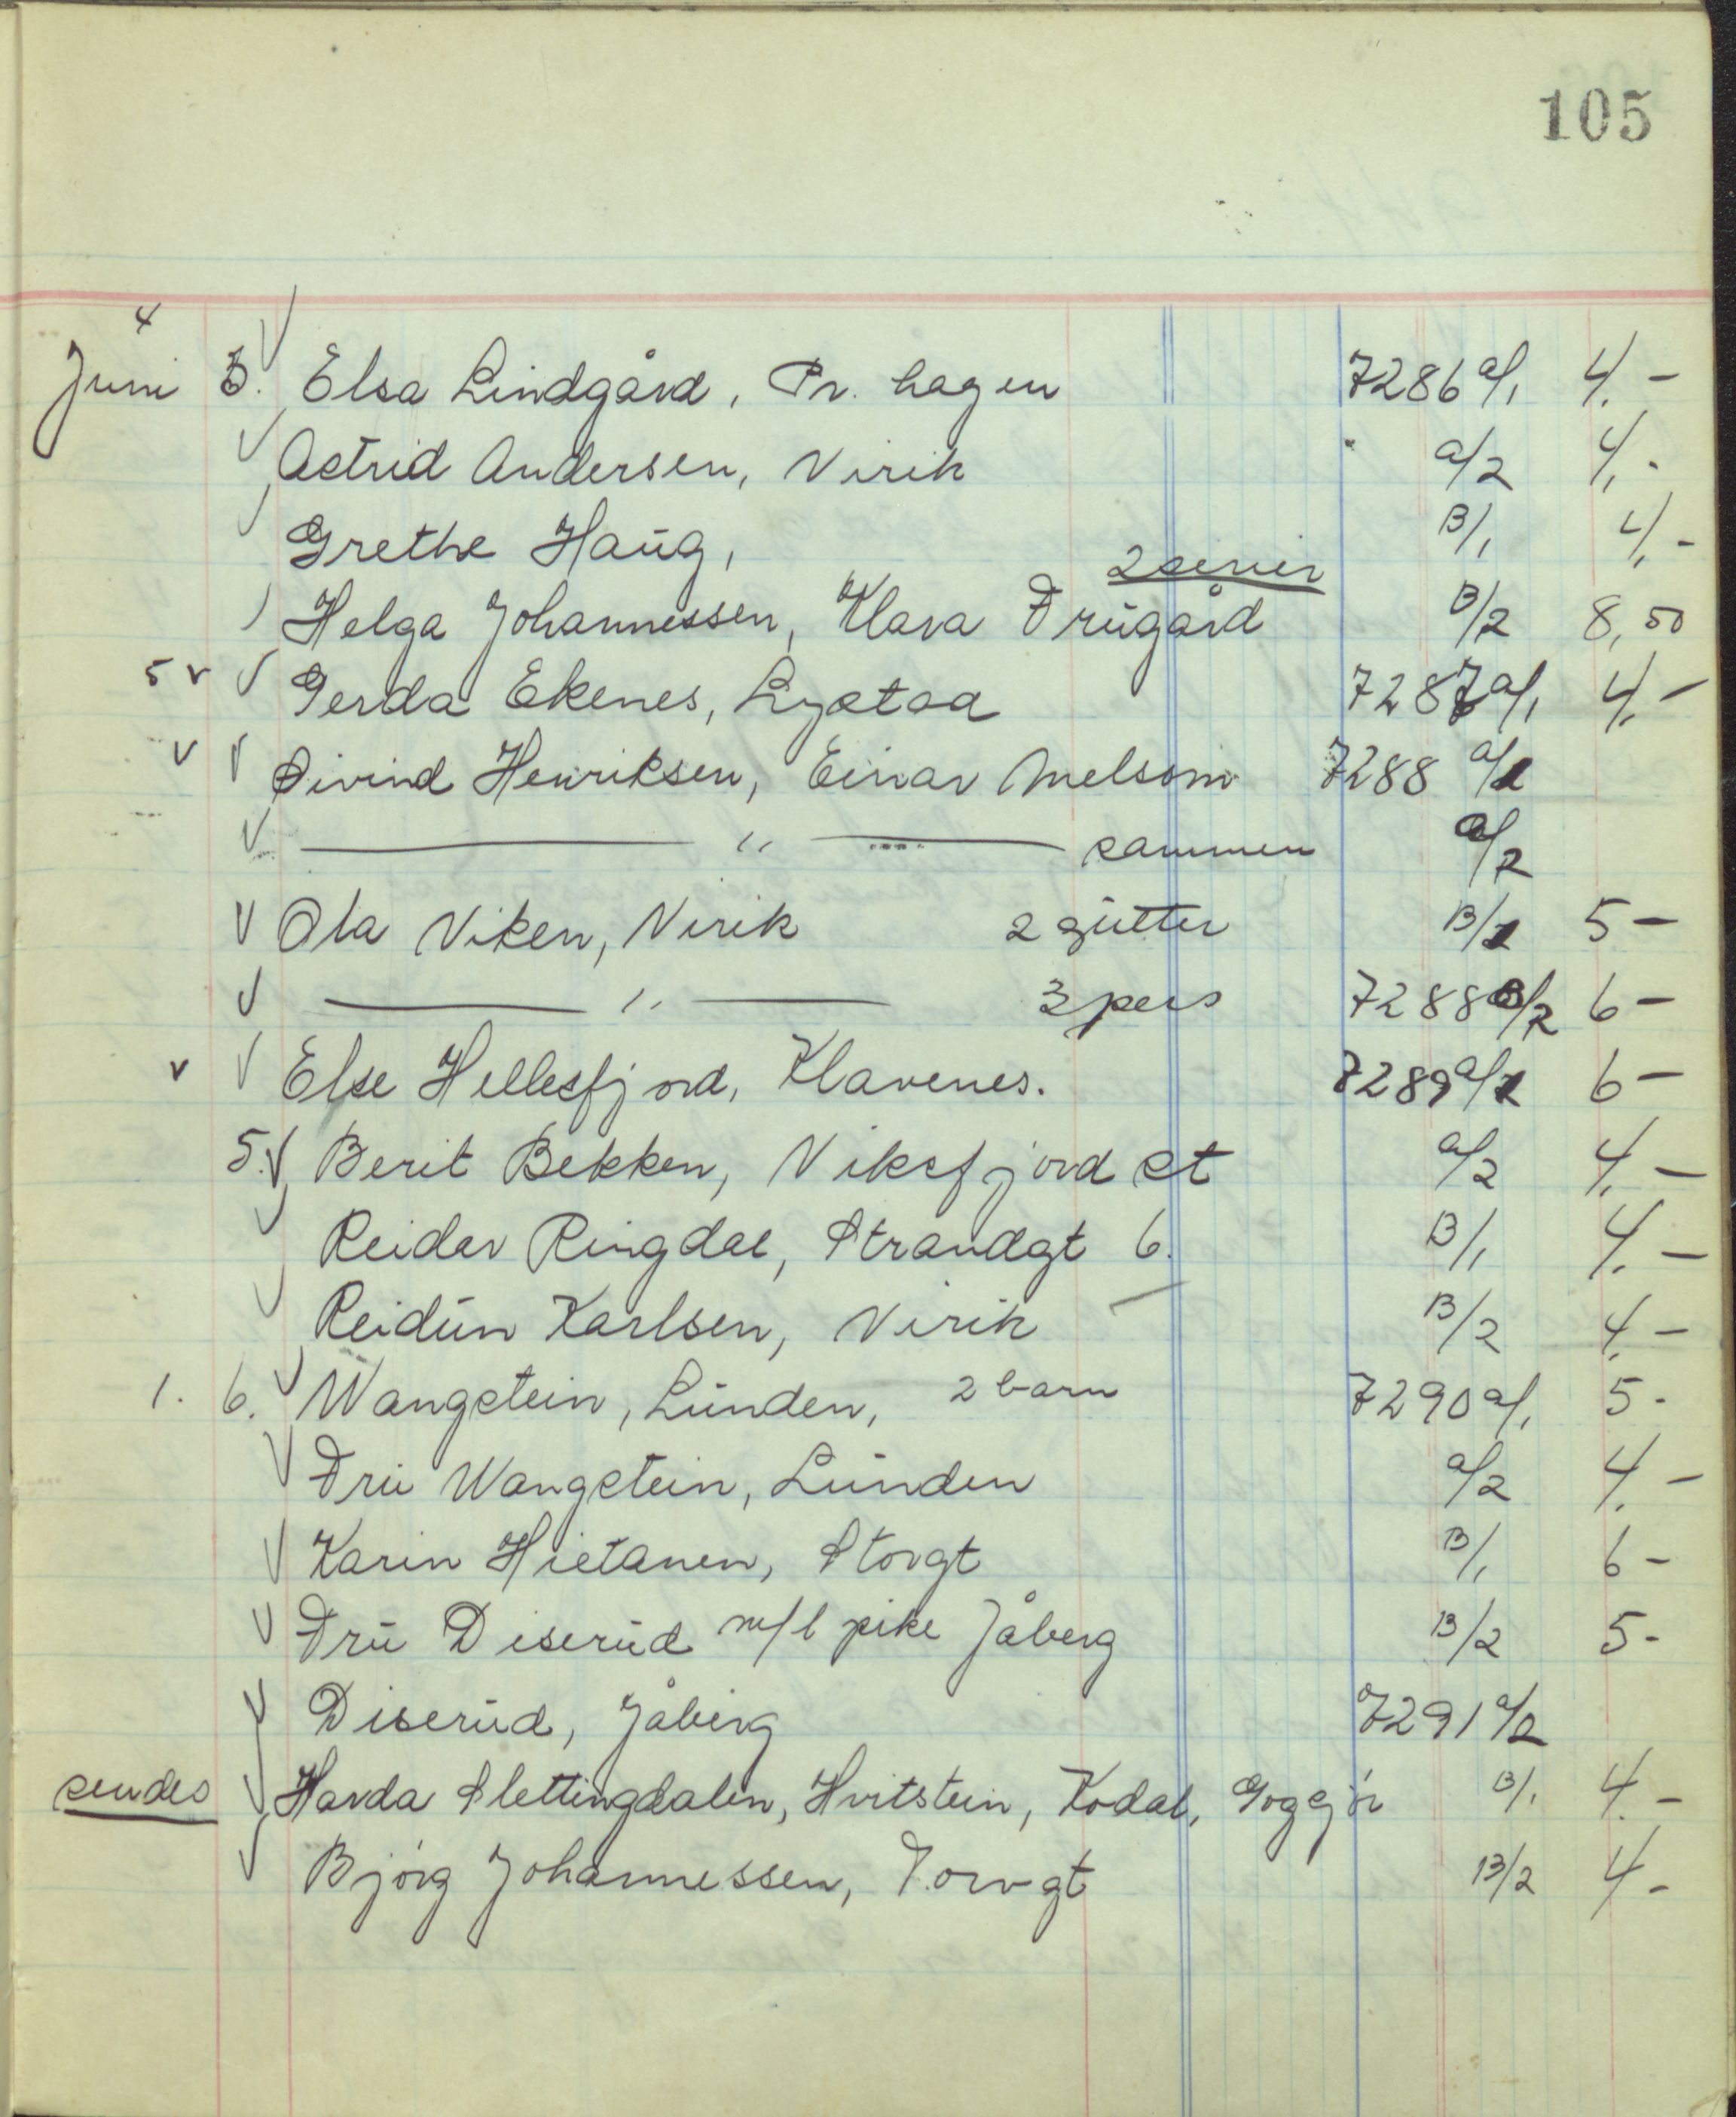 105
4
Juni 3. Elsa Lindgård, Pr. hagen 7286 a/1 4,-
Astrid Andersen, Virik " a/2 4,-
Grethe Haug, B/1 4,-
2 serier
Helga Johannessen, Klara Frugård B/2 8,50
5 v Gerda Ekenes, Lystad 7287 a/1 4,-
v Øivind Henriksen, Einar Melsom 7288 a/1
— " — sammen a/2
Ola Viken, Virik 2 gutter B/1 5-
— " — 3 pers 7288 B/2 6-
v Else Hellesfjord, Klavenes. 7289 a/1 6-
5. Berit Bekken, Viksfjord st a/2 4,-
Reidar Ringdal, Strandgt 6. B/1 4,-
Reidun Karlsen, Virik B/2 4,-
1. 6. Wangstein, Lunden, 2 barn 7290 a/1 5-
Fru Wangstein, Lunden a/2 4,-
Karin Hietanen, Storgt B/1 6-
Fru Diserud m/l pike Jåberg B/2 5-
Diserud, Jåberg 7291 a/2
sendes Harda Slettingdalen, Hvitstein, Kodal, B/1 4,-
Bjørg Johannessen, Torvgt B/2 4-